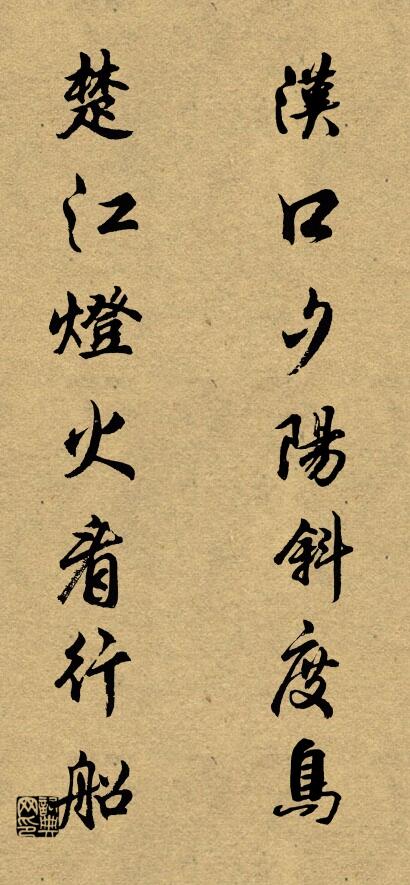 漢口夕陽斜度鳥
楚江燈火看行船